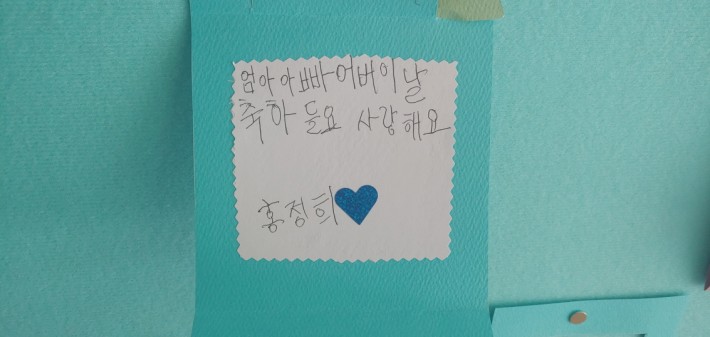 엄아아빠어버이날
축하 들요 사랑해요
홍정희